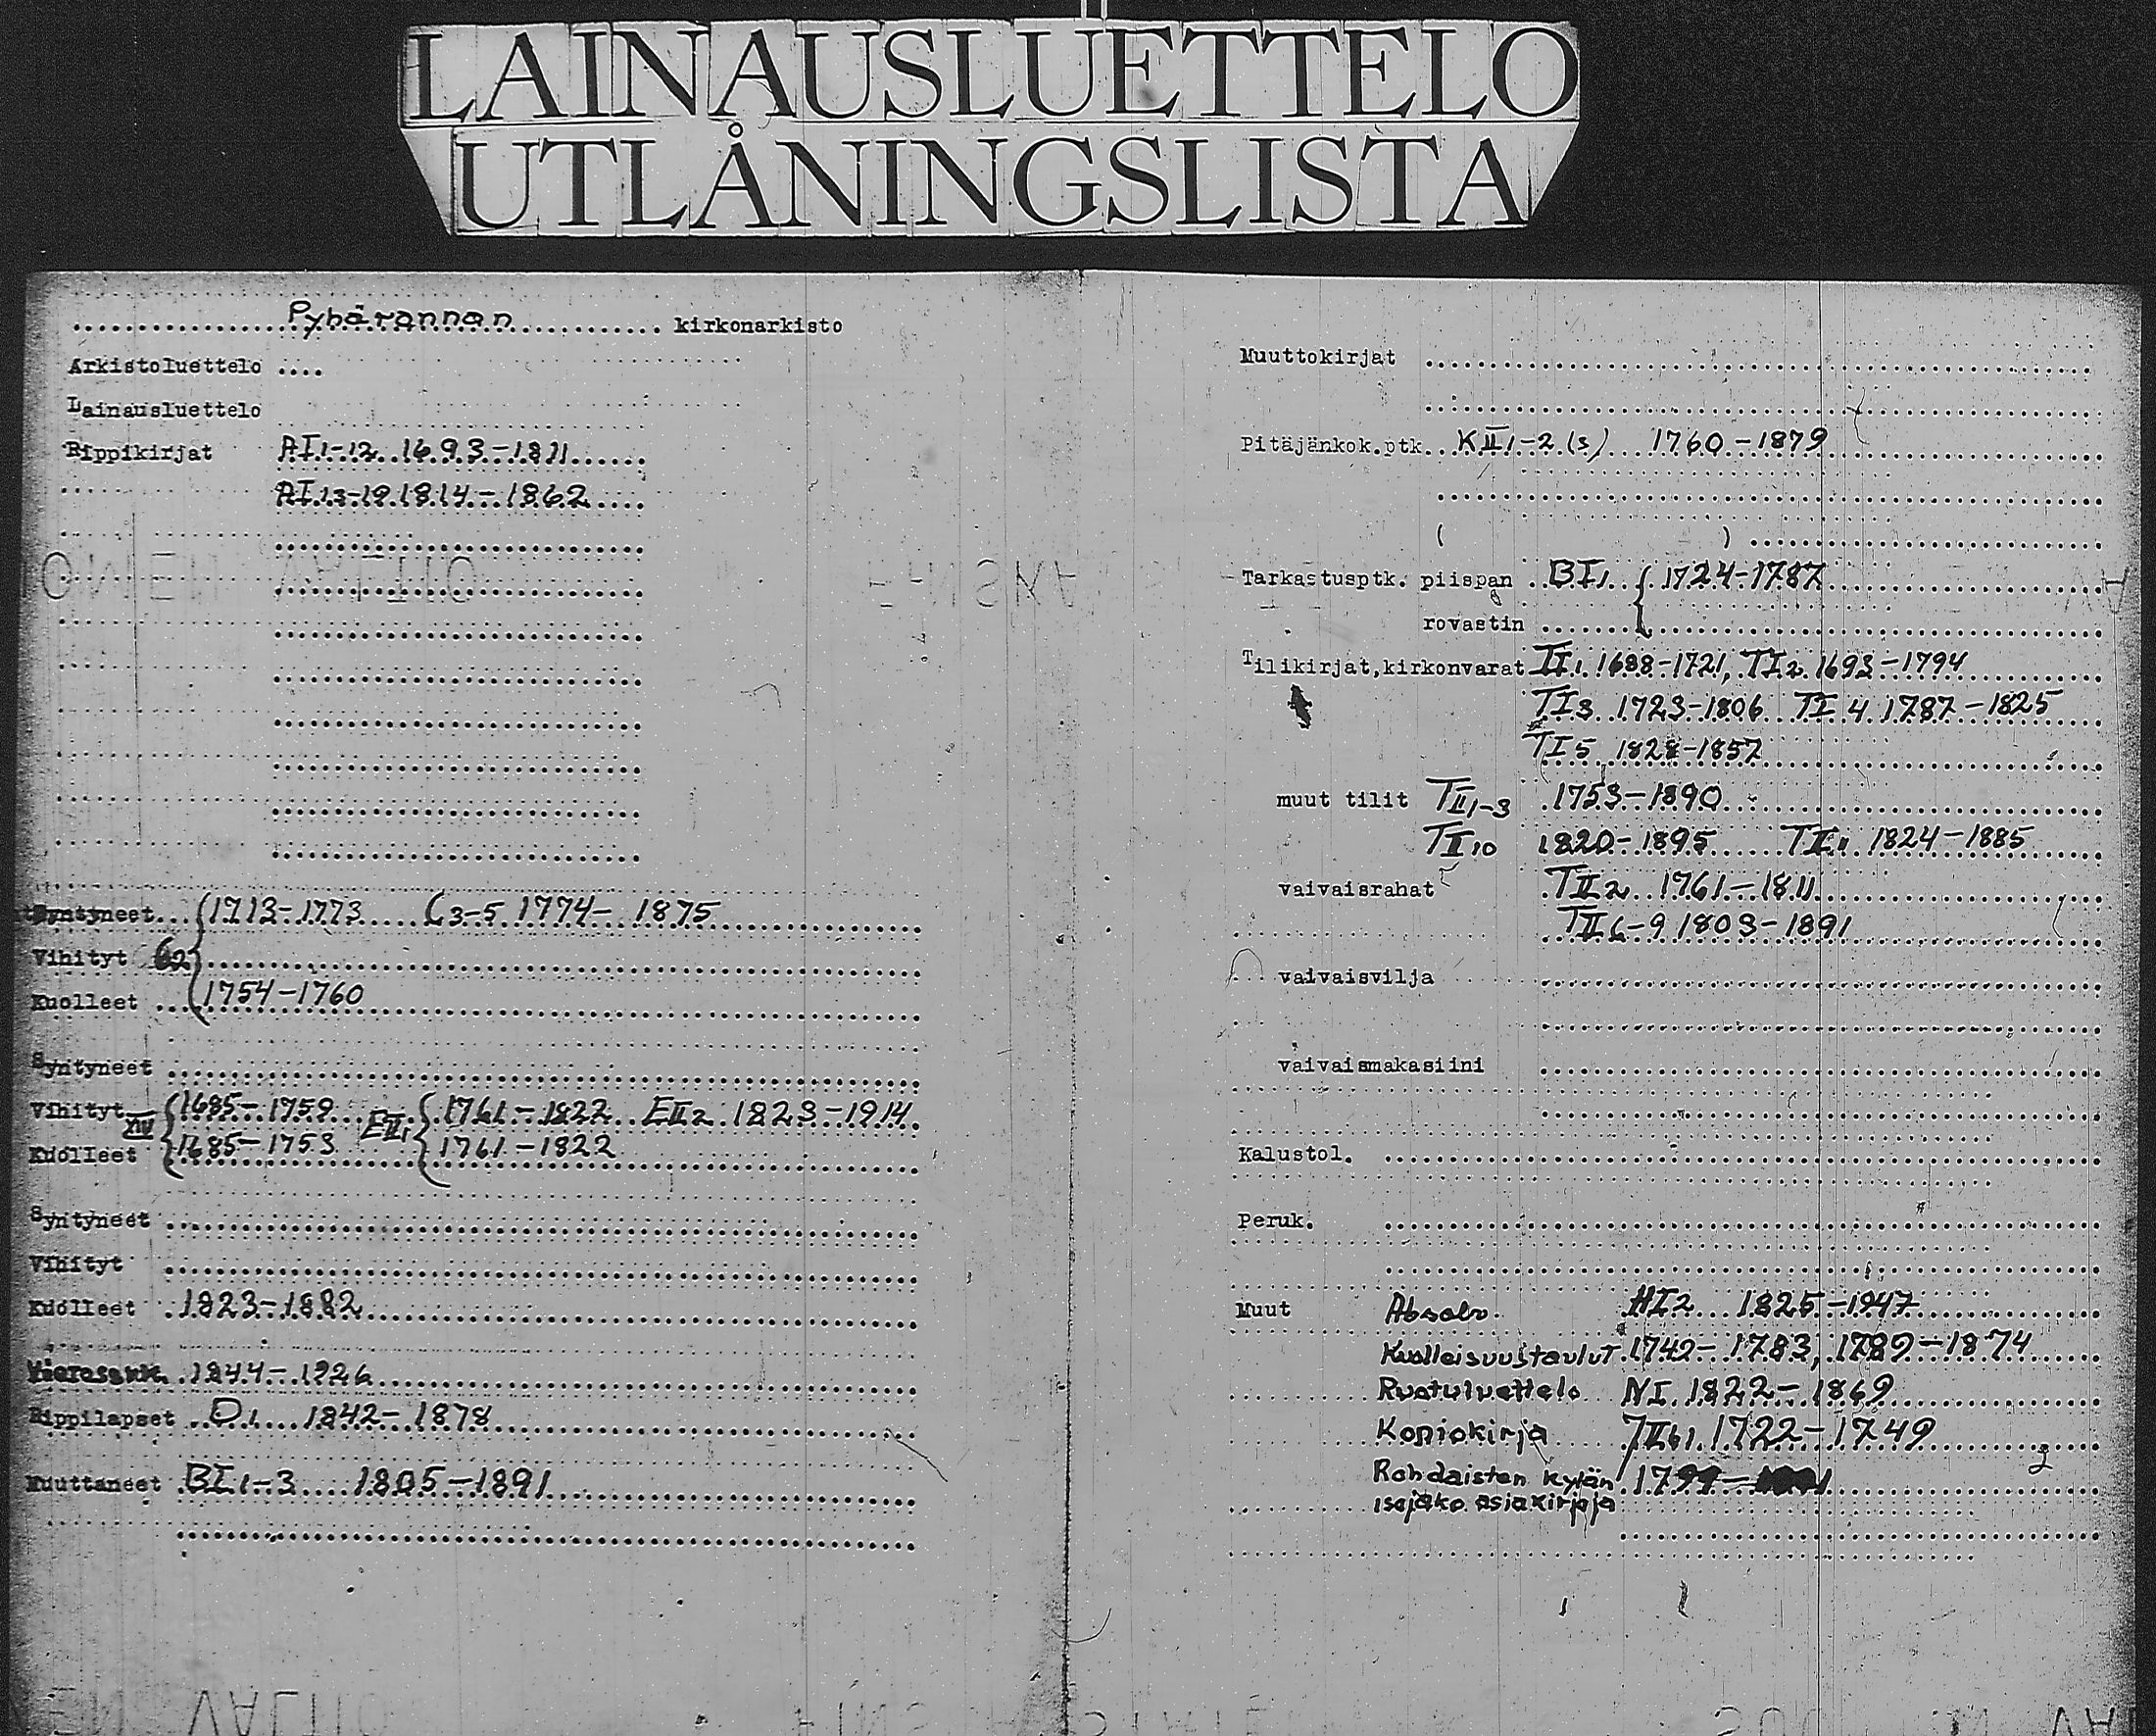 LAINAUSLUETTELO
UTLÅNINGSLISTA
Pyhärannan kirkonarkisto
Arkistoluettelo ....
Lainausluettelo
Rippikirjat AI 1-12 1693-1811
AI 13-19 1814-1862
Syntyneet 1713-1773 C3-5 1774-1875
Vihityt C2
Kuolleet 1754-1760
Syntyneet
Vihityt 1685-1759 EII1 1761-1822 EII2 1823-1914
Kuolleet 1685-1753 1761-1822
Syntyneet
Vihityt
Kuolleet 1823-1882
1844-1926
Rippilapset D1 1842-1878
Muuttaneet BI 1-3 1805-1891
Muuttokirjat
Pitäjänkok.ptk. KII 1-2 (s) 1760-1879
( )
Tarkastusptk. piispan BI1 { 1724-1787
rovastin
Tilikirjat,kirkonvarat TI1 1688-1721, TI2 1693-1794
TI3 1723-1806 TI4 1787-1825
TI5 1828-1857
muut tilit TII1-3 1753-1890
TII10 1820-1895 TII11 1824-1885
vaivaisrahat TII2 1761-1811
TII6-9 1803-1891
vaivaisvilja
vaivaismakasiini
Kalustol.
Peruk.
Muut Absolv. HI2 1825-1947
Kuolleisuustaulut 1749-1783, 1789-1874
Ruotuluettelo NI 1822-1869
Kopiokirja 1722-1749
Rohdaisten kylän 1799-
isojako asiakirjoja